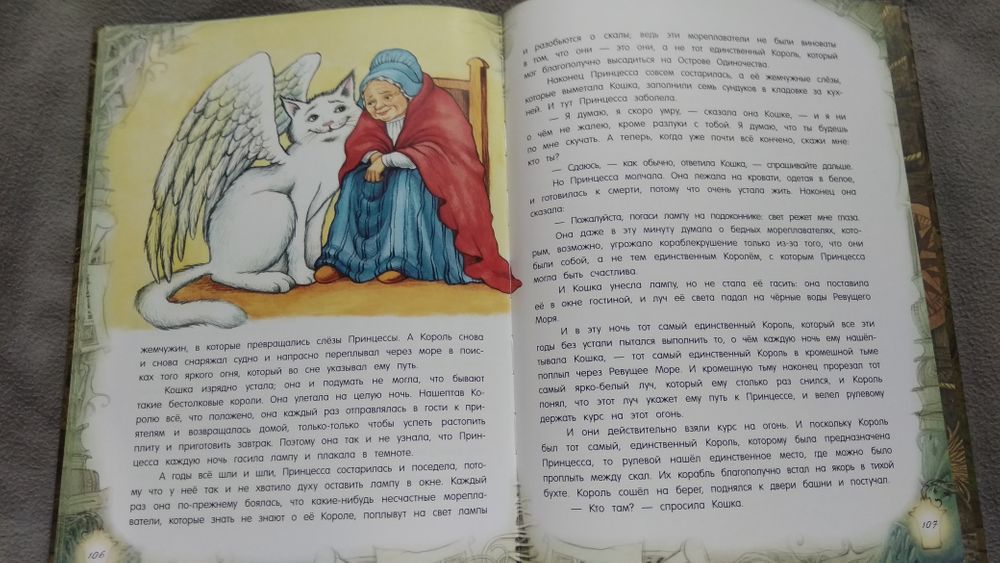 жемчужин, в которые превращались слёзы Принцессы. А Король снова
и снова снаряжал судно и напрасно переплывал через море в поис-
ках того яркого огня, который во сне указывал ему путь.
Кошка изрядно устала; она и подумать не могла, что бывают
такие бестолковые короли. Она улетала на целую ночь. Нашептав Ко-
ролю всё, что положено, она каждый раз отправлялась в гости к при-
ятелям и возвращалась домой, только-только чтобы успеть растопить
плиту и приготовить завтрак. Поэтому она так и не узнала, что Прин-
цесса каждую ночь гасила лампу и плакала в темноте.
А годы всё шли и шли, Принцесса состарилась и поседела, пото-
му что у неё так и не хватило духу оставить лампу в окне. Каждый
раз она по-прежнему боялась, что какие-нибудь несчастные морепла-
ватели, которые знать не знают о её Короле, поплывут на свет лампы
106
и разобьются о скалы; ведь эти мореплаватели не были виноваты
в том, что они — это они, а не тот единственный Король, который
мог благополучно высадиться на Острове Одиночества.
Наконец Принцесса совсем состарилась, а её жемчужные слёзы,
которые выметала Кошка, заполнили семь сундуков в кладовке за кух-
ней. И тут Принцесса заболела.
— Я думаю, я скоро умру, — сказала она Кошке, — и я ни
о чём не жалею, кроме разлуки с тобой. Я думаю, что ты будешь
по мне скучать. А теперь, когда уже почти всё кончено, скажи мне:
кто ты?
— Сдаюсь, — как обычно, ответила Кошка, — спрашивайте дальше.
Но Принцесса молчала. Она лежала на кровати, одетая в белое,
и готовилась к смерти, потому что очень устала жить. Наконец она
сказала:
— Пожалуйста, погаси лампу на подоконнике: свет режет мне глаза.
Она даже в эту минуту думала о бедных мореплавателях, кото-
рым, возможно, угрожало кораблекрушение только из-за того, что они
были собой, а не тем единственным Королём, с которым Принцесса
могла быть счастлива.
И Кошка унесла лампу, но не стала её гасить: она поставила
её в окне гостиной, и луч её света падал на чёрные воды Ревущего
Моря.
И в эту ночь тот самый единственный Король, который все эти
годы без устали пытался выполнить то, о чём каждую ночь ему нашёп-
тывала Кошка, — тот самый единственный Король в кромешной тьме
поплыл через Ревущее Море. И кромешную тьму наконец прорезал тот
самый ярко-белый луч, который ему столько раз снился, и Король
понял, что этот луч укажет ему путь к Принцессе, и велел рулевому
держать курс на этот огонь.
И они действительно взяли курс на огонь. И поскольку Король
был тот самый, единственный Король, которому была предназначена
Принцесса, то рулевой нашёл единственное место, где можно было
проплыть между скал. Их корабль благополучно встал на якорь в тихой
бухте. Король сошёл на берег, поднялся к двери башни и постучал.
— Кто там? — спросила Кошка.
107